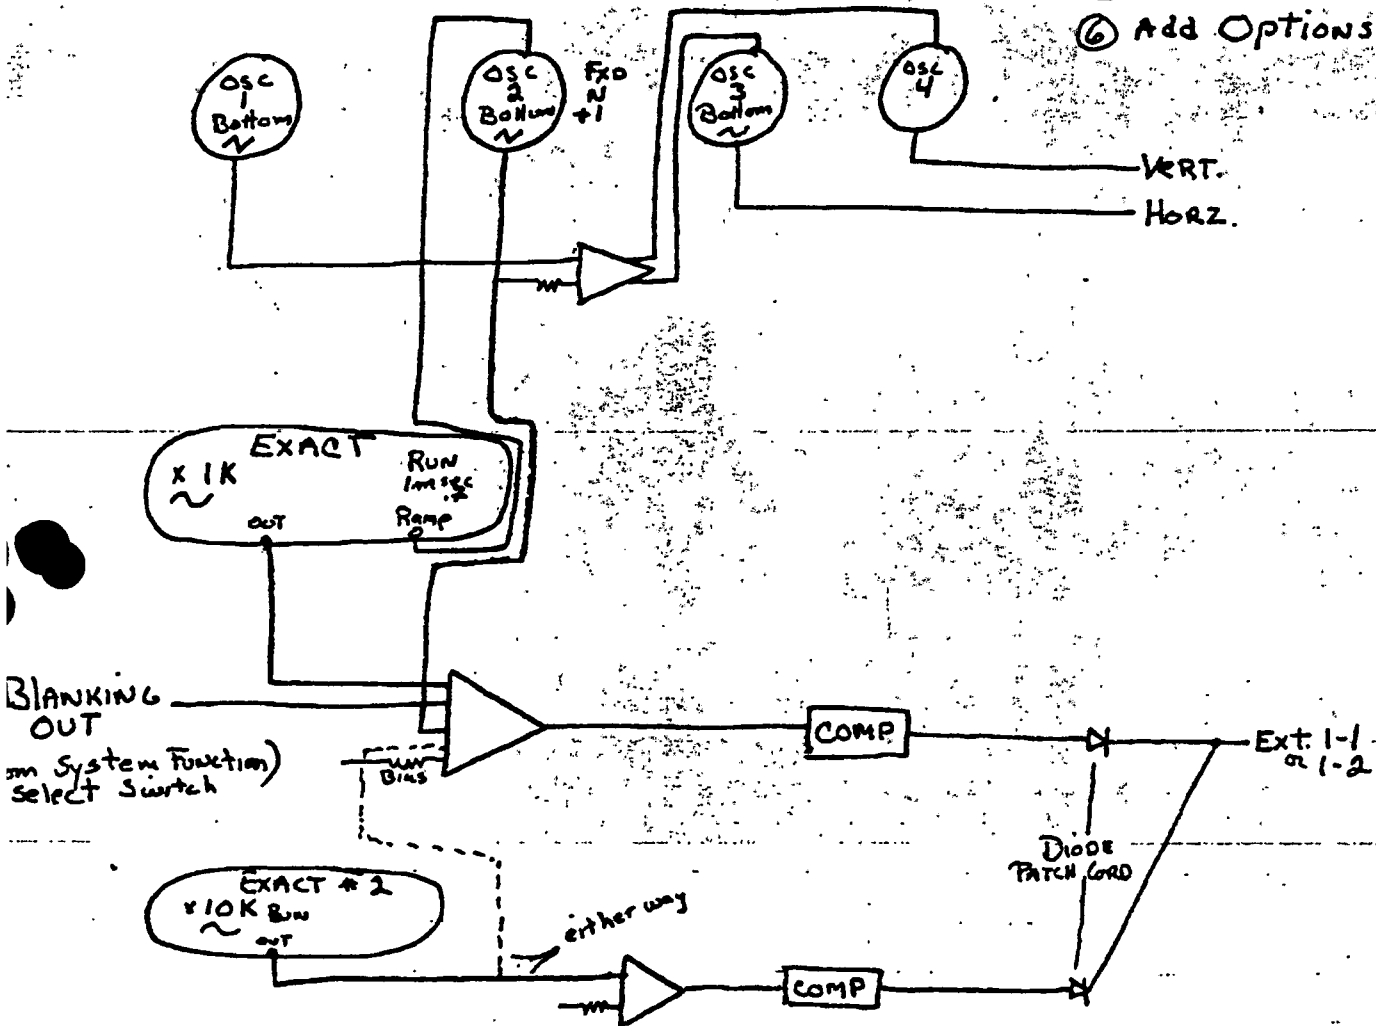 ⑥ Add Options
OSC
1
Bottom
OSC
2
Bottom
FXD
N
+1
OSC
3
Bottom
OSC
4
VERT.
HORZ.
EXACT
x 1K
RUN
1msec
OUT
Ramp
BLANKING
OUT
System Function)
Select Switch
Bias
COMP
Ext. 1-1
or 1-2
DIODE
PATCH CORD
EXACT # 2
x 10K
OUT
either way
COMP